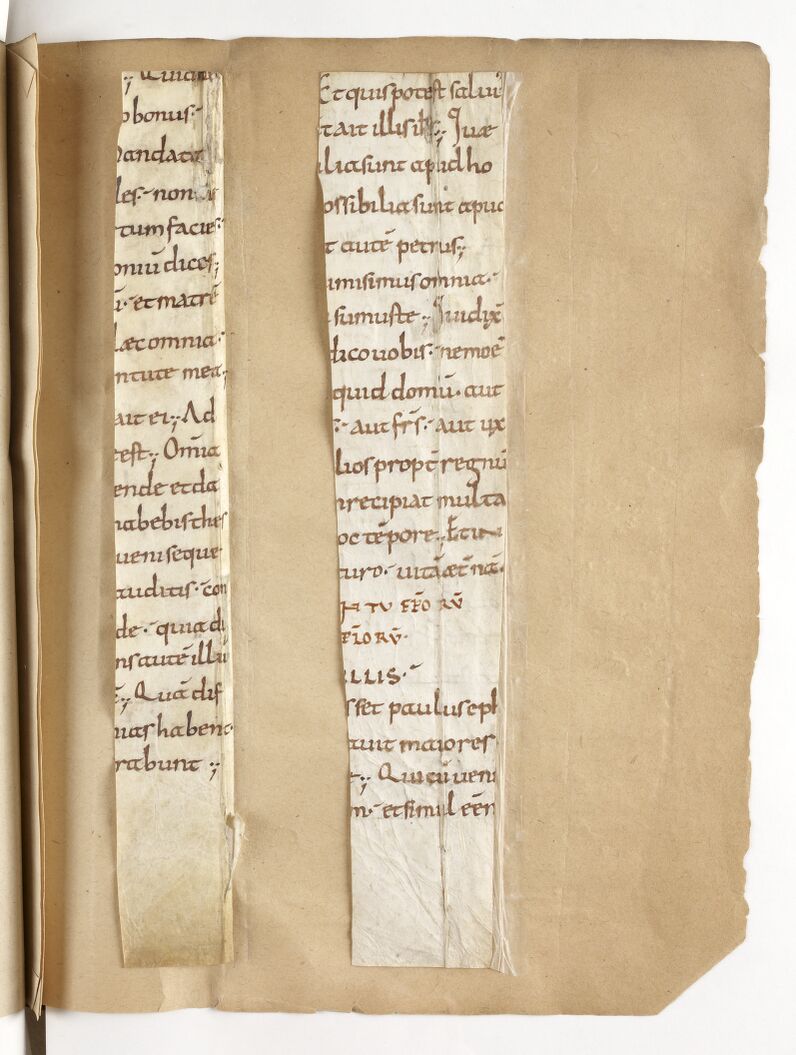 bonus·
andata
les· non
tum facies·
oniū dices;
et matrē
ec omnia·
ntute mea
ait ei; Ad
eest; Om̄ia
ende et da
habebis thes
ueni seque
auditis· con
de· quia di
ns autē illū
; Quā dif
nias habent
rabunt ;
Et quis potest saluu
t ait illis ih̄s; Quae
ilia sunt apud ho
ossibilia sunt apud
t autē petrus;
imisimus omnia·
sumus te; Qui dix̄
dico uobis· nemo ē
quid domū· aut
· aut fr̄s· aut ux
lios propt̄ regnū
n recipiat multa
oc tēpore; Et in
turo· uitā aet̄nā·
ILLIS·
sset paulus eph
auit maiores
; Qui cū ueni
m· et simul eēn